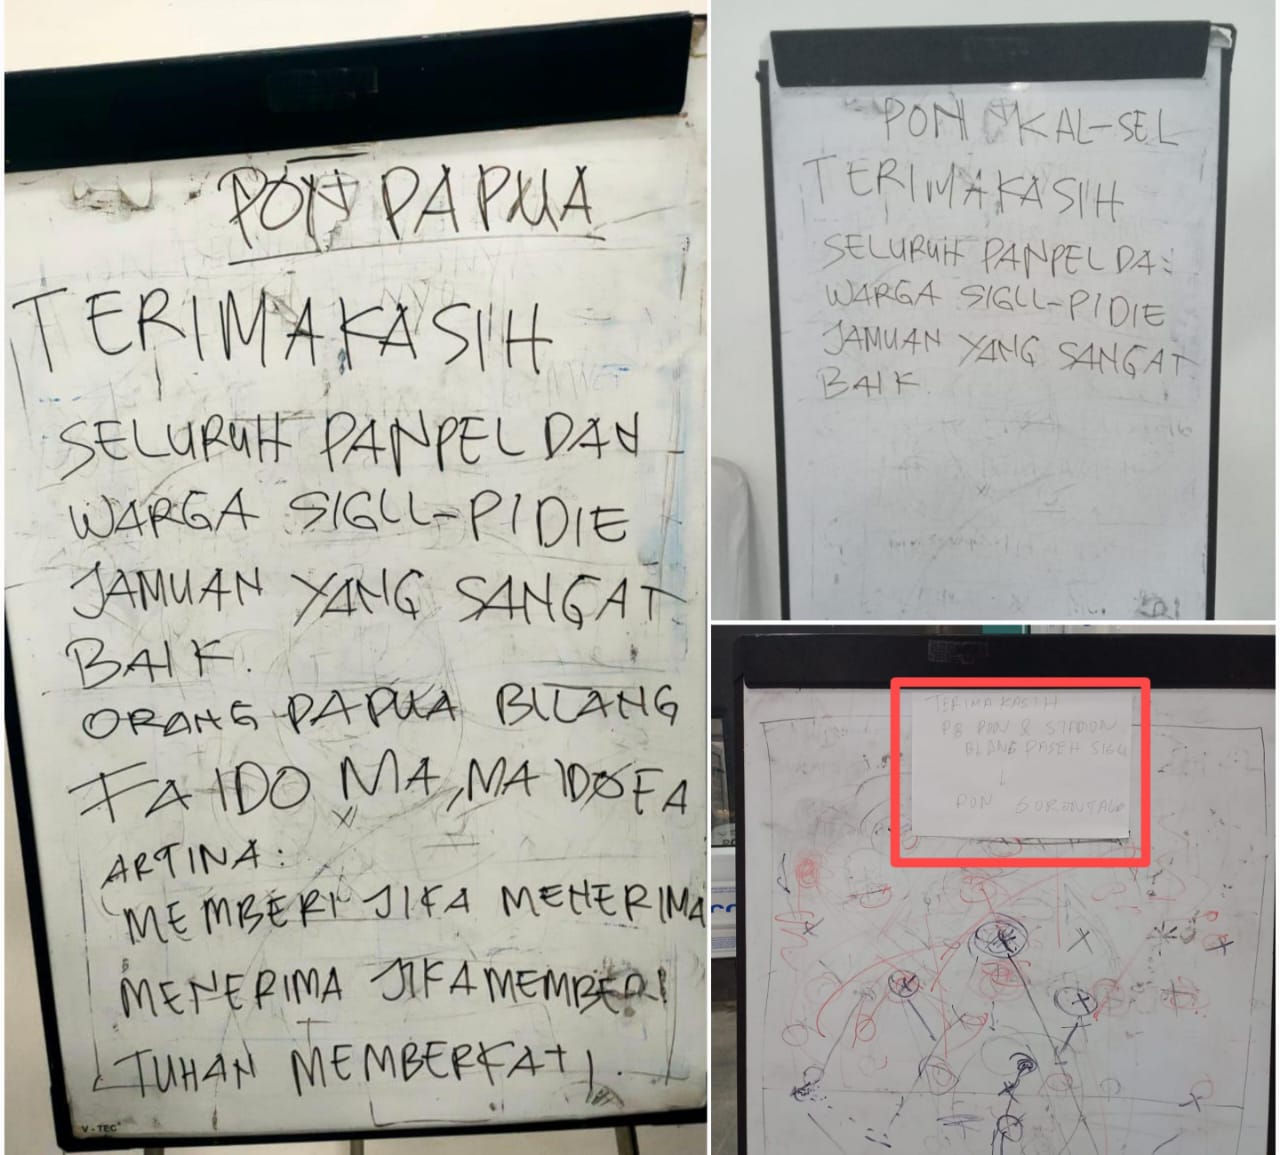 PON PAPUA
TERIMAKASIH
SELURUH PANPEL DAN
WARGA SIGLL-PIDIE
JAMUAN YANG SANGAT
BAIK.
ORANG PAPUA BILANG
FA IDO MA, MA IDO FA
ARTINA:
MEMBERI JIKA MENERIMA
MENERIMA JIKA MEMBERI
TUHAN MEMBERKATI.
V-TEC
PON KAL-SEL
TERIMAKASIH
SELURUH PANPEL DA
WARGA SIGLL-PIDIE
JAMUAN YANG SANGAT
BAIK.
TERIMAKASIH
PB PON & STADION
BLANG PASEH SIGLI
↓
PON GORONTALO